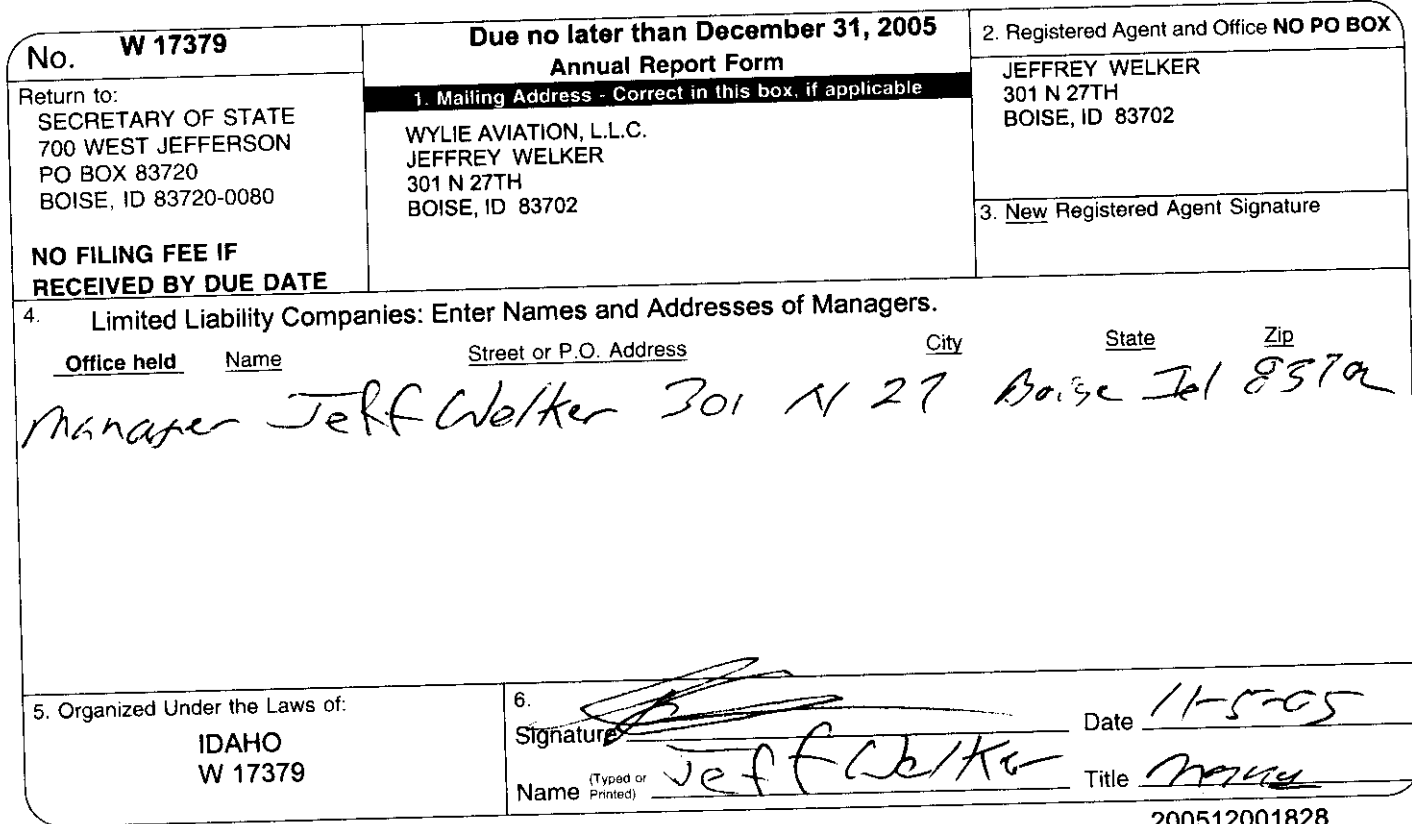 No. W 17379
Return to:
SECRETARY OF STATE
700 WEST JEFFERSON
PO BOX 83720
BOISE, ID 83720-0080
NO FILING FEE IF
RECEIVED BY DUE DATE
Due no later than December 31, 2005
Annual Report Form
1. Mailing Address - Correct in this box, if applicable
WYLIE AVIATION, L.L.C.
JEFFREY WELKER
301 N 27TH
BOISE, ID 83702
2. Registered Agent and Office NO PO BOX
JEFFREY WELKER
301 N 27TH
BOISE, ID 83702
3. New Registered Agent Signature
4. Limited Liability Companies: Enter Names and Addresses of Managers.
Office held Name Street or P.O. Address City State Zip
Manager Jeff Welker 301 N 27 Boise Id 83702
5. Organized Under the Laws of:
IDAHO
W 17379
6.
Signature Date 11-5-05
Name (Typed or Printed) Jeff Welker Title
200512001828